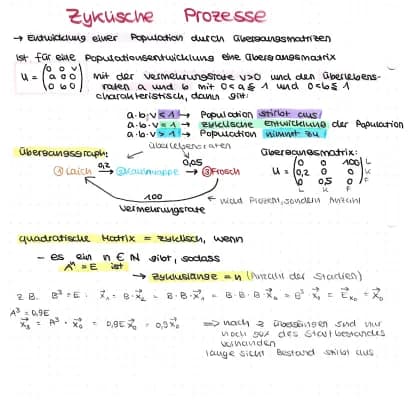 Zyklische Prozesse
→ Entwicklung einer Population durch Übergangsmatrizen
Ist für eine Populationsentwicklung eine Übergangsmatrix
U = (0 0 v
a 0 0
0 b 0) mit der Vermehrungsrate v>0 und den Überlebens-
raten a und b mit 0<a≤1 und 0<b≤1
charakteristisch, dann gilt:
a·b·v<1 → Population stirbt aus
a·b·v=1 → zyklische Entwicklung der Population
a·b·v>1 → Population nimmt zu
Überlebensraten
Übergangsgraph:
0,2 0,05
① Laich → ② Kaulquappe → ③ Frosch
100
Vermehrungsrate
← keine Prozent, sondern Anzahl
Übergangsmatrix:
U = (0 0 100
0,2 0 0
0 0,5 0) L K F
L K F
quadratische Matrix = zyklisch, wenn
- es ein n ∈ N gibt, sodass
Aⁿ = E ist
→ Zykluslänge = n (Anzahl der Stadien)
z.B. B³=E: x₁ = B·x₂ = B·B·x₁ = B·B·B·x₀ = B³·x₀ = E·x₀ = x₀
A³ = 0,9E
x₃ = A³·x₀ = 0,9E x₀ = 0,9x₀
⇒ nach 3 Übergängen sind nur
noch 90% des Startbestandes
vorhanden
lange Sicht Bestand stirbt aus